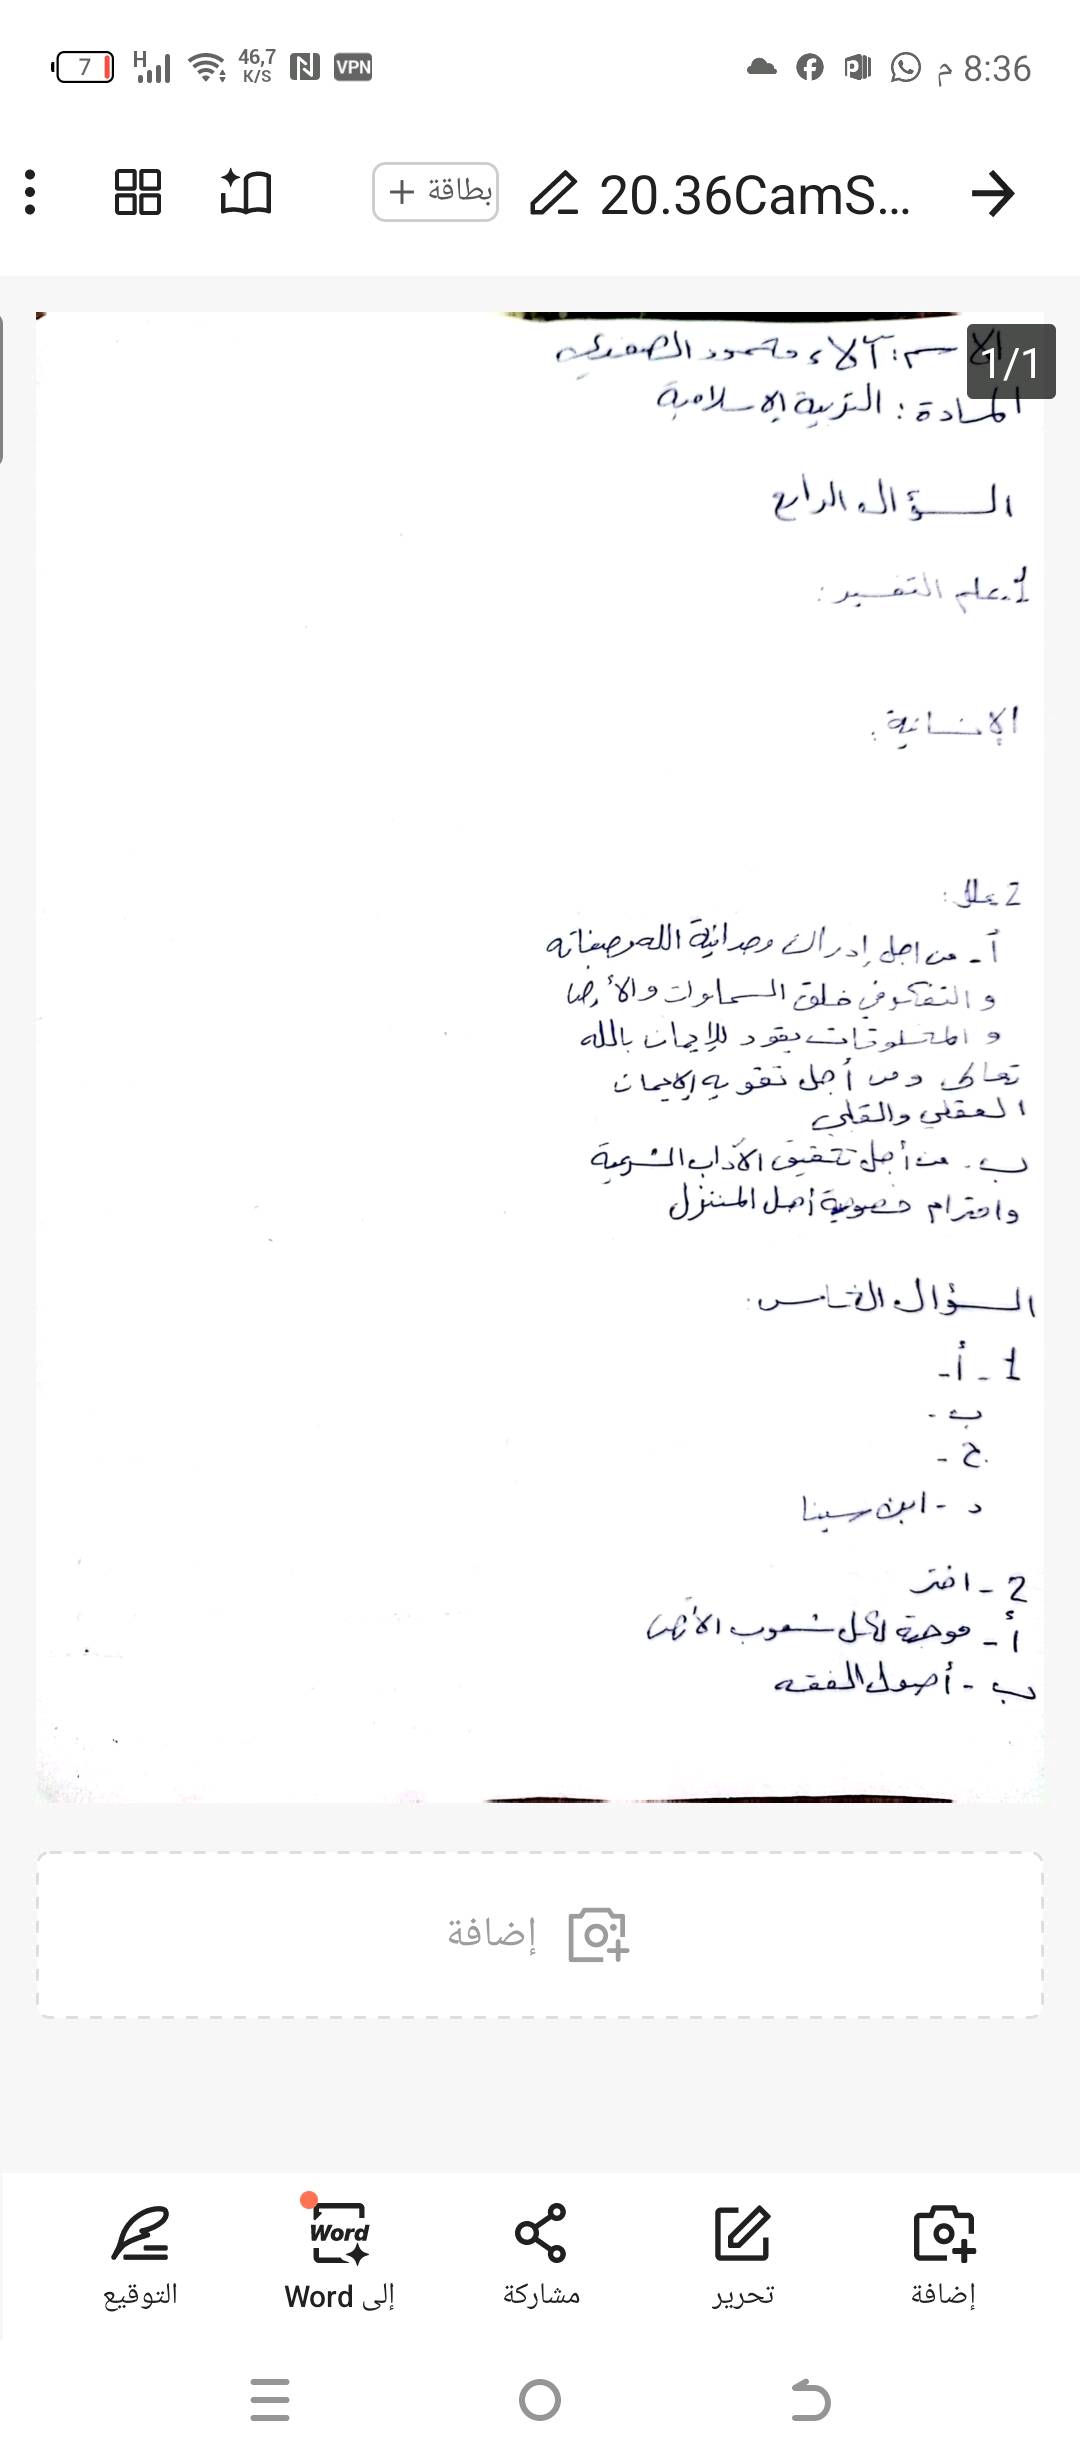 8:36 م
46,7 K/S
VPN
7
H
20.36CamS...
بطاقة +
1/1
الاسم: آلاء محمود الصفدي
المادة: التربية الإسلامية
السؤال الرابع
1. علم التفسير:
الإنسانية:
2 علل:
أ- من اجل إدراك وحدانية الله وصفاته
و التفكر في خلق السماوات والأرض
و المخلوقات يقود للإيمان بالله
تعالى ومن أجل تقوية الإيمان
العقلي والقلبي
ب. من أجل تحقيق الآداب الشرعية
واحترام خصوصية أهل المنزل
السؤال الخامس:
1 - أ-
ب -
ج -
د - ابن سينا
2 - اختر
أ - موجهة لكل شعوب الأرض
ب - أصول الفقه
إضافة
إضافة
تحرير
مشاركة
Word
إلى Word
التوقيع